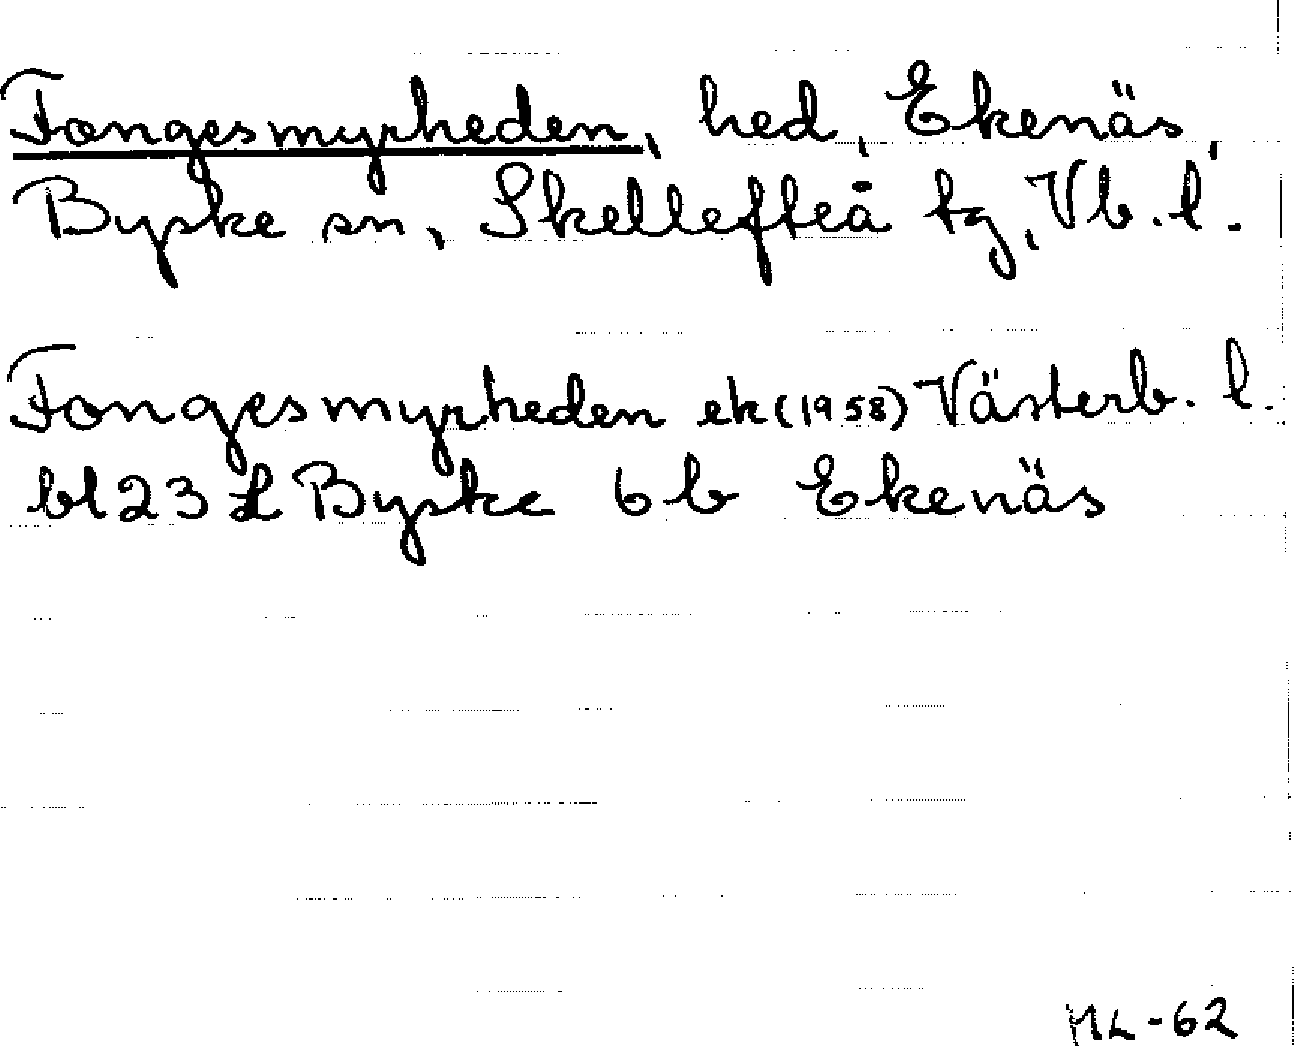 Fongesmyrheden, hed, Ekenäs,
Byske sn, Skellefteå tg, Vb. l.
Fongesmyrheden ek (1958) Västerb. l.
bl 23 L Byske 6 b Ekenäs
ML-62